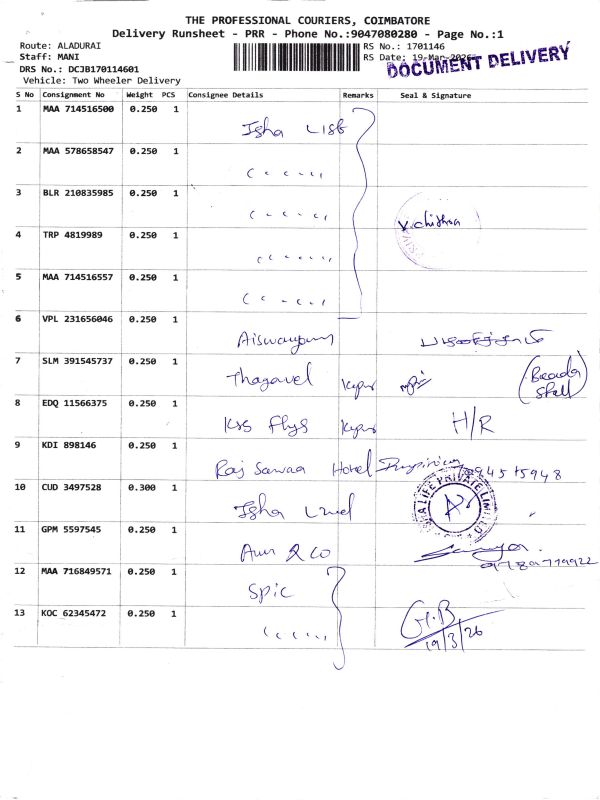 THE PROFESSIONAL COURIERS, COIMBATORE
Delivery Runsheet - PRR - Phone No.:9047080280 - Page No.:1
Route: ALADURAI
Staff: MANI
DRS No.: DCJB170114601
Vehicle: Two Wheeler Delivery
RS No.: 1701146
RS Date: 19-Mar-2026
DOCUMENT DELIVERY
S No Consignment No Weight PCS Consignee Details Remarks Seal & Signature
1 MAA 714516500 0.250 1 Isha
2 MAA 578658547 0.250 1
3 BLR 210835985 0.250 1
V. chithra
4 TRP 4819989 0.250 1
5 MAA 714516557 0.250 1
6 VPL 231656046 0.250 1
7 SLM 391545737 0.250 1 Thagavel
8 EDQ 11566375 0.250 1 H/R
9 KDI 898146 0.250 1 Raj Sarwaa Hotel
10 CUD 3497528 0.300 1 Isha
LIFE PRIVATE LIMITED
11 GPM 5597545 0.250 1 & CO
9789719922
12 MAA 716849571 0.250 1 SPIC
13 KOC 62345472 0.250 1 G.B
19/3/26